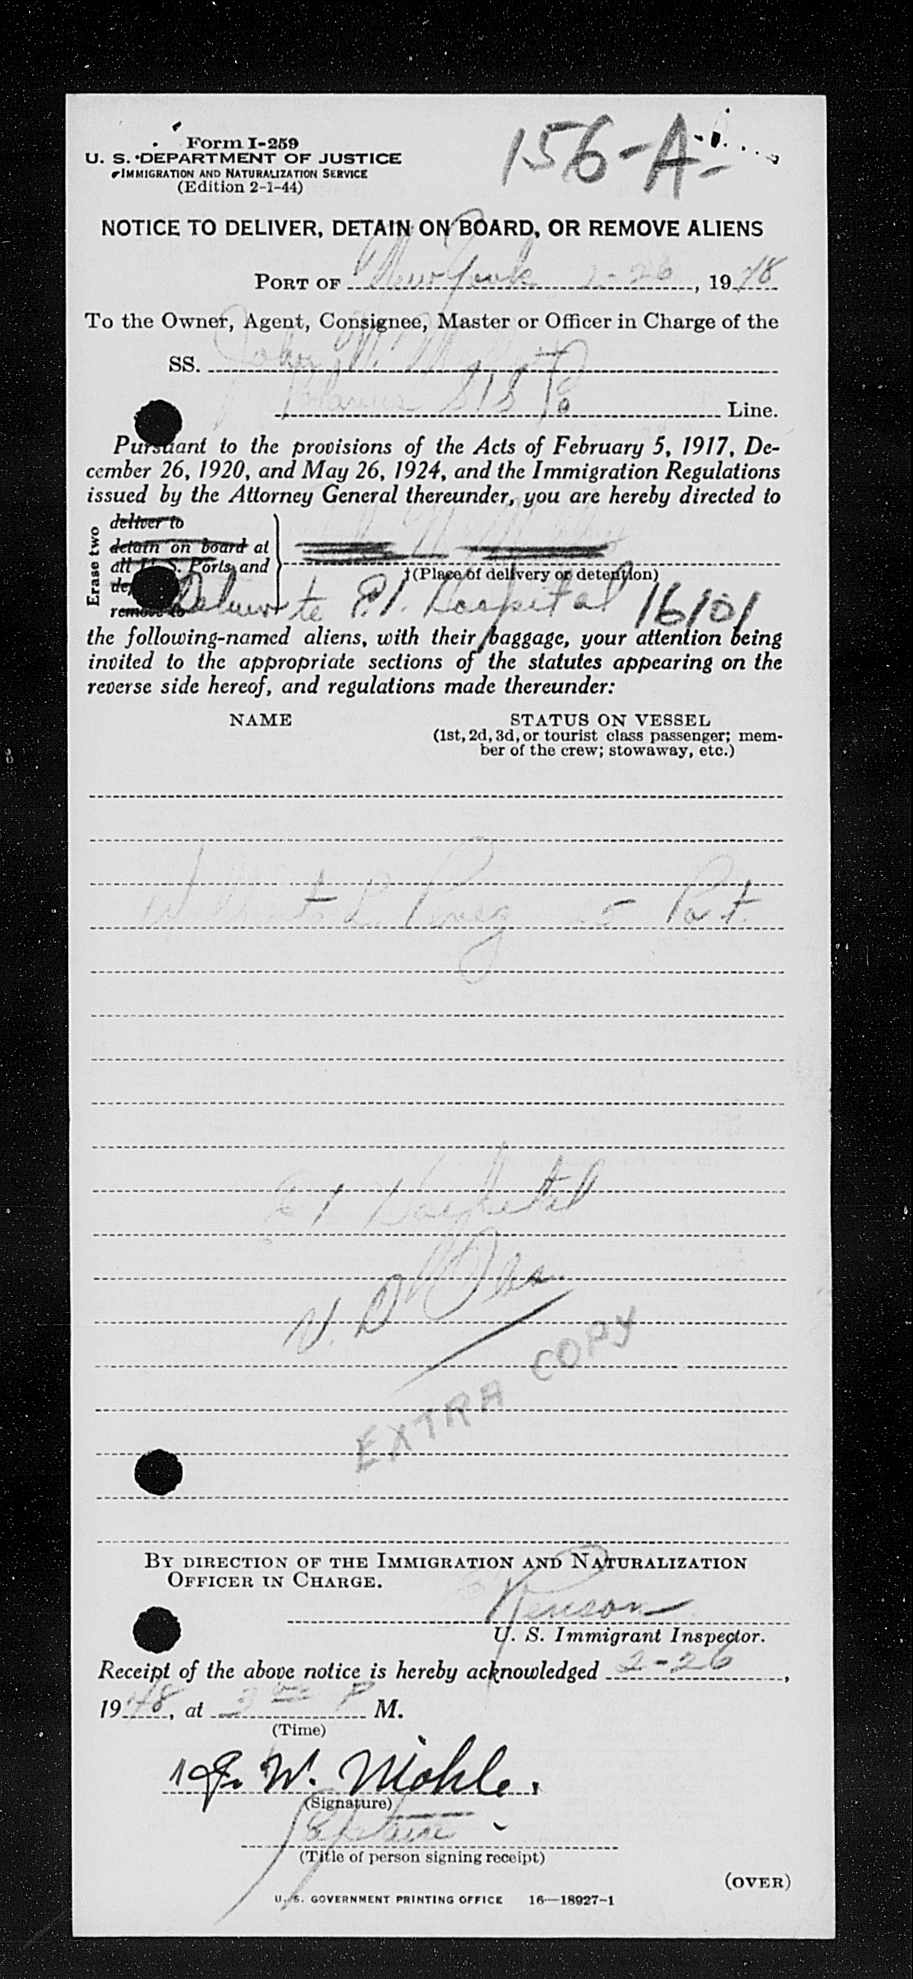 156-A-
Form I-259
U. S. DEPARTMENT OF JUSTICE
IMMIGRATION AND NATURALIZATION SERVICE
(Edition 2-1-44)
NOTICE TO DELIVER, DETAIN ON BOARD, OR REMOVE ALIENS
PORT OF New York 2-26, 1948
To the Owner, Agent, Consignee, Master or Officer in Charge of the
SS. John W.
S/S Co Line.
Pursuant to the provisions of the Acts of February 5, 1917, De-
cember 26, 1920, and May 26, 1924, and the Immigration Regulations
issued by the Attorney General thereunder, you are hereby directed to
Erase two
deliver to
detain on board at
all U. S. Ports and
remove to
†(Place of delivery or detention)
E.I. Hospital 16/01
the following-named aliens, with their baggage, your attention being
invited to the appropriate sections of the statutes appearing on the
reverse side hereof, and regulations made thereunder:
NAME
STATUS ON VESSEL
(1st, 2d, 3d, or tourist class passenger; mem-
ber of the crew; stowaway, etc.)
L. Perez Port.
E I Hospital
V. D.
EXTRA COPY
BY DIRECTION OF THE IMMIGRATION AND NATURALIZATION
OFFICER IN CHARGE.
U. S. Immigrant Inspector.
Receipt of the above notice is hereby acknowledged 2-26,
1948, at 3 P M.
(Time)
W. Mohle.
(Signature)
Captain
(Title of person signing receipt)
(OVER)
U. S. GOVERNMENT PRINTING OFFICE 16—18927-1